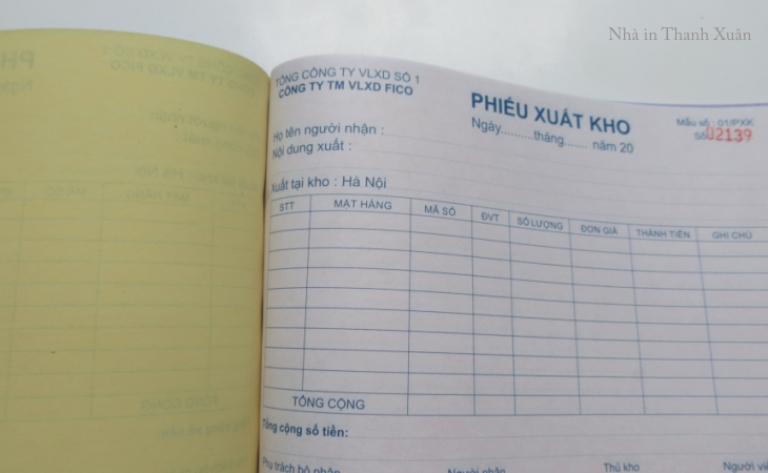 Nhà in Thanh Xuân
TỔNG CÔNG TY VLXD SỐ 1
CÔNG TY TM VLXD FICO
PHIẾU XUẤT KHO
Ngày..........tháng....... năm 20
Mẫu số : 01/PXK
Số 02139
Họ tên người nhận :
Nội dung xuất :
Xuất tại kho : Hà Nội
STT MẶT HÀNG MÃ SỐ ĐVT SỐ LƯỢNG ĐƠN GIÁ THÀNH TIỀN GHI CHÚ
TỔNG CỘNG
Tổng cộng số tiền:
Phụ trách bộ phận Người nhận Thủ kho Người